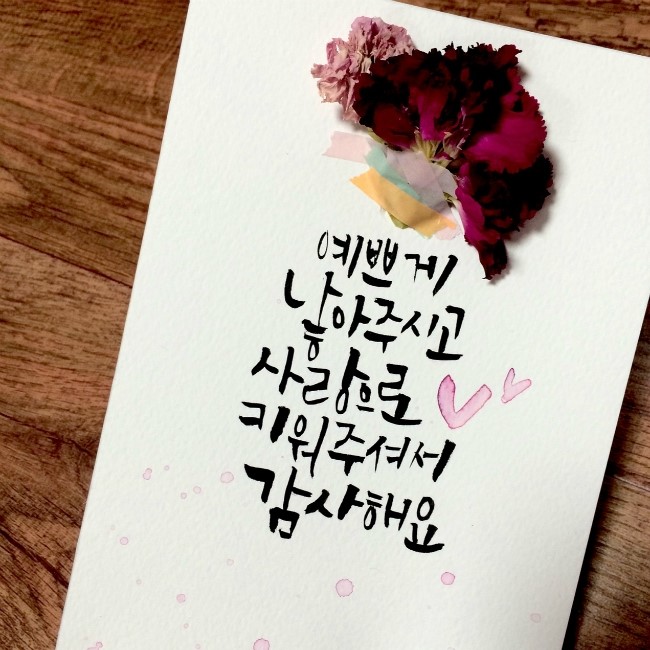 예쁘게
낳아주시고
사랑으로
키워주셔서
감사해요